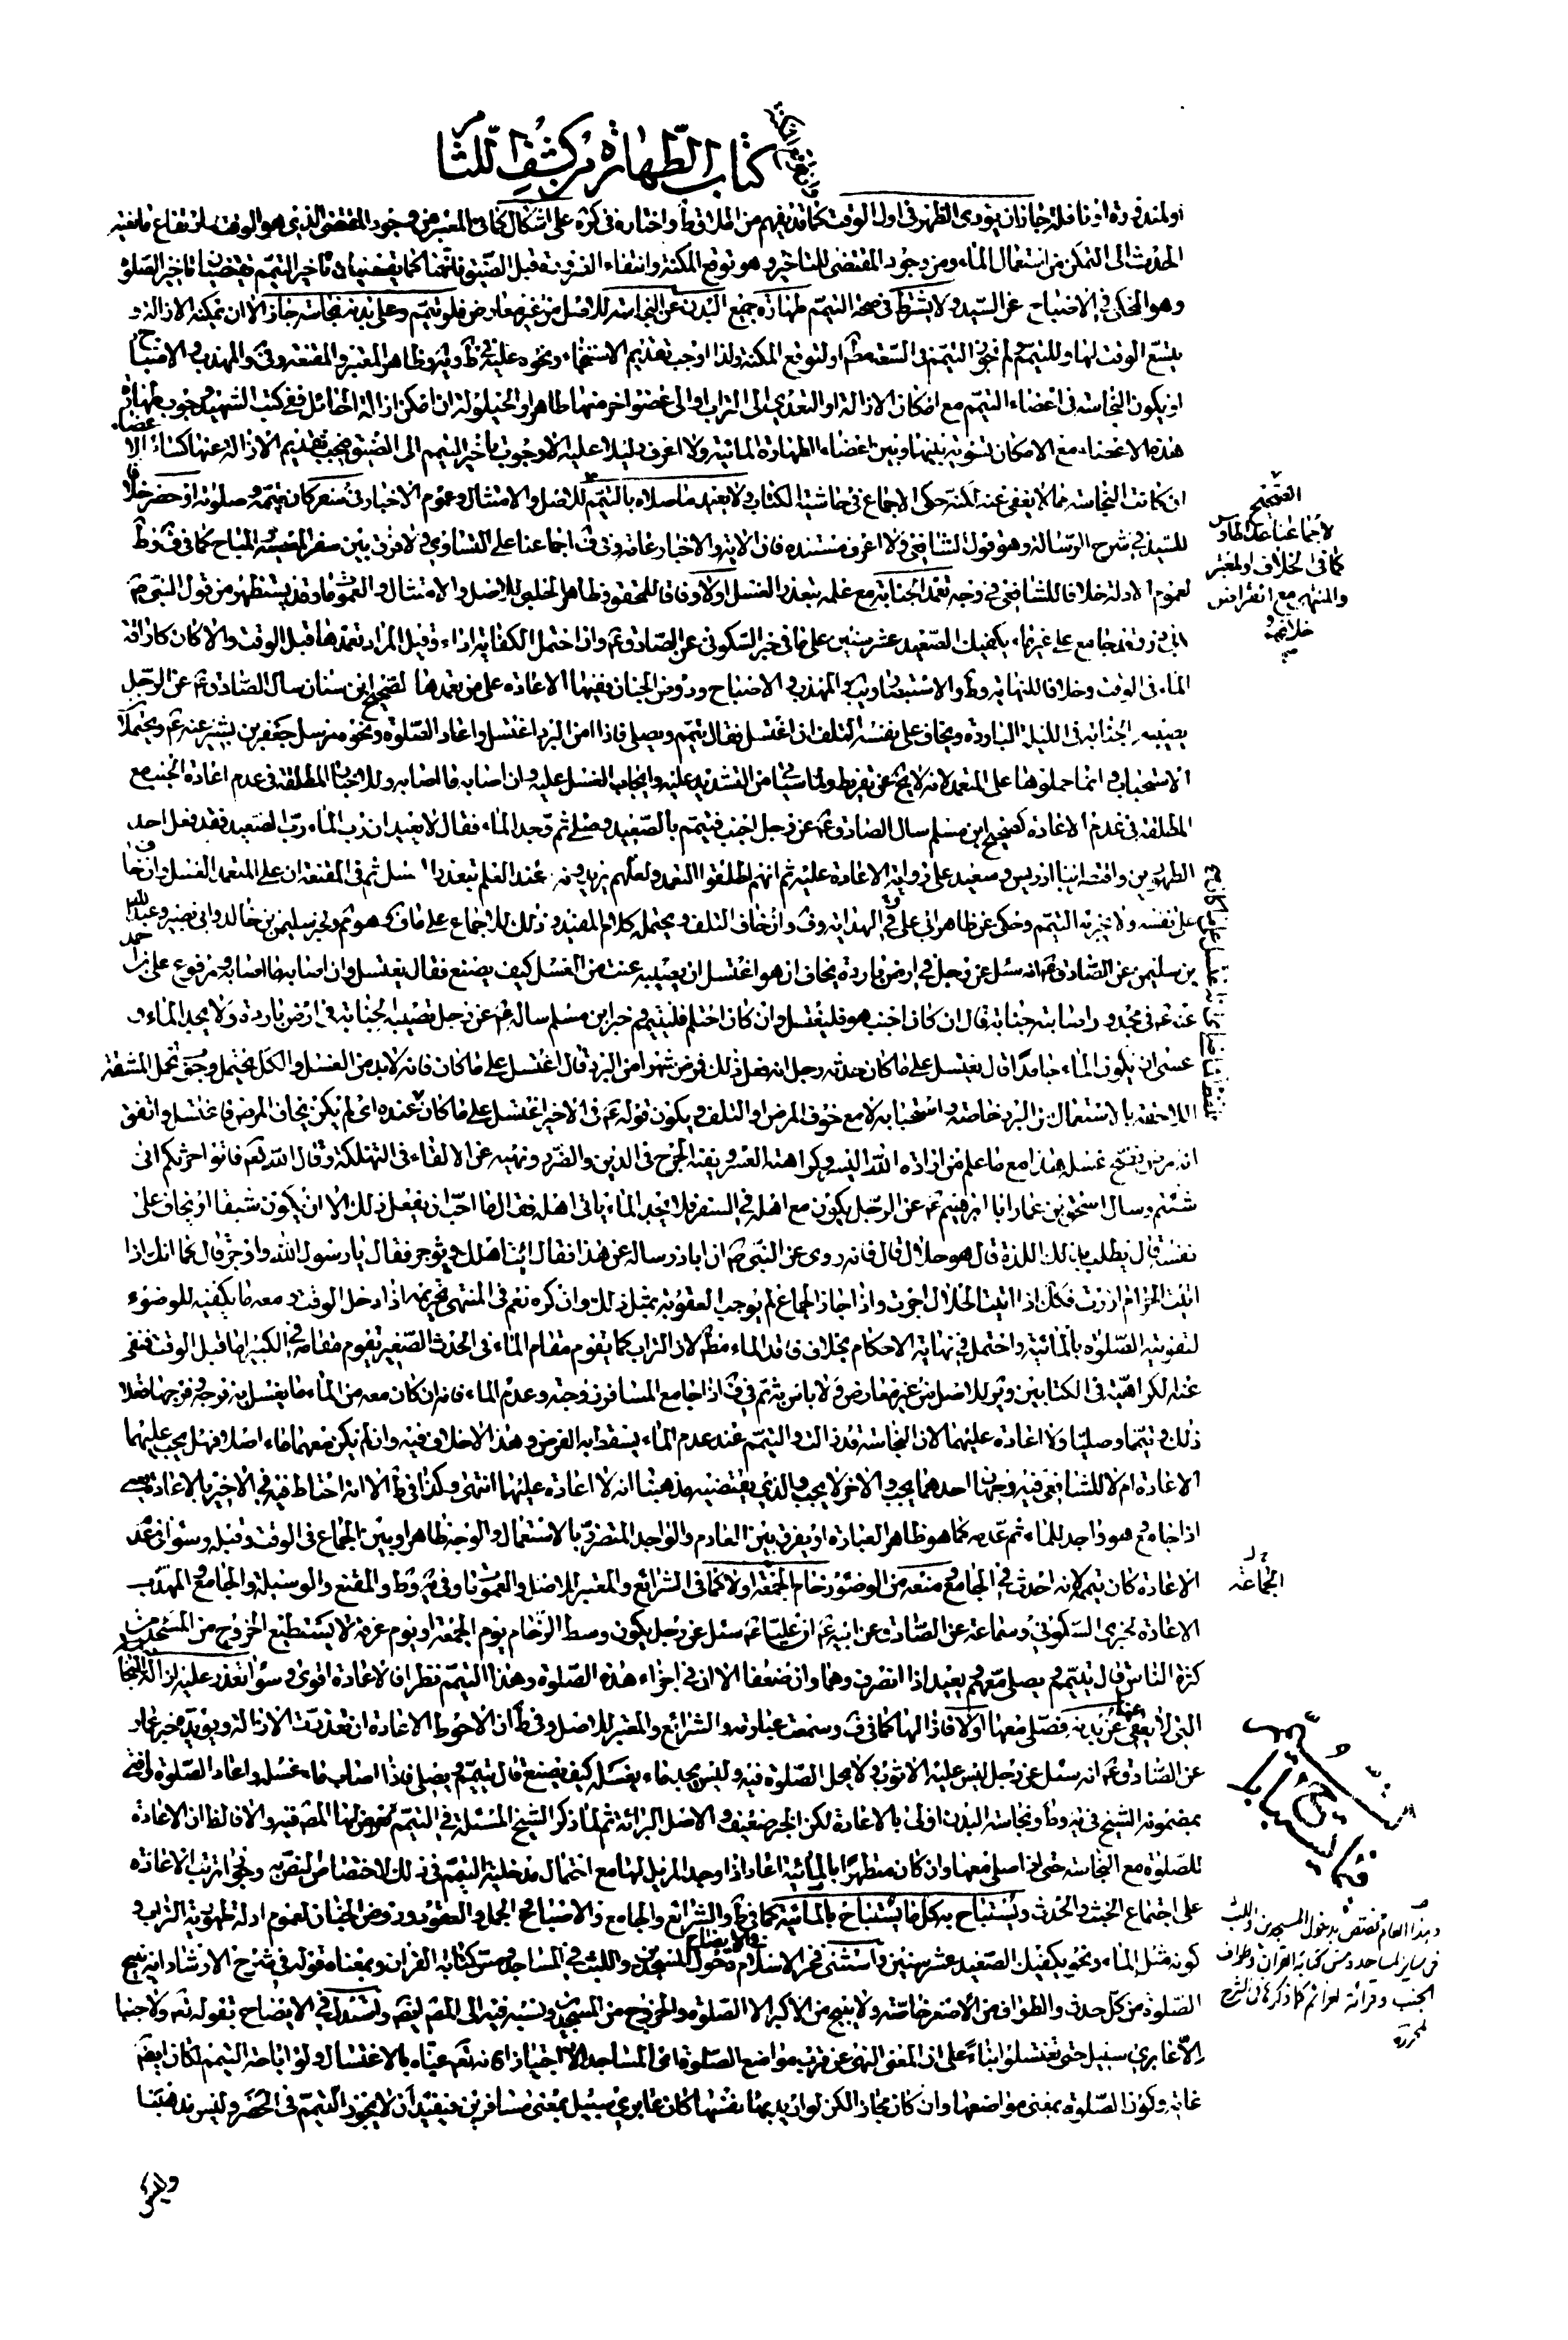 كتاب الطهارة من كشف اللثام
او لمنذورة او نافلة جاز ان يؤدى الظهر فى اول الوقت كما قد يفهم من اطلاق ط واختاره فى كره على اشكال كما فى المعتبر من وجود المقتضى الذى هو الوقت وارتفاع مانعية
الحدث الى التمكن من استعمال الماء ومن وجود المقتضى للتاخير وهو توقع المكنة وانتفاء الضرورة قبل الضيق
وهو المحكى فى الايضاح عن السيد ولا يشترط فى صحة التيمم طهارة جميع البدن عن النجاسة للاصل من غير معارض فلو تيمم وعلى بدنه نجاسة جاز الا ان تمكنه الازالة و
يتسع الوقت لها وللتيمم ولم نجوز التيمم فى السعة مط او لتوقع المكنة ولذا اوجب تقديم الاستنجاء ونحوه عليه فى وظاهر المعتبر والمقنعة والمهذب والاصباح
او يكون النجاسة فى اعضاء التيمم مع امكان الازالة او التعدى الى التراب او الى عضو اخر منها طاهر او الحيلولة ان امكن ازالة الحائل ففى كتب الشهيد وجوب طهارة
هذه الاعضاء مع الامكان تسوية بينها وبين اعضاء الطهارة المائية ولا اعرف دليلا عليه الا وجوب تاخير التيمم الى الضيق فيجب تقديم الازالة عنها كسائر الاعضاء
ان كانت النجاسة مما لا يعفى عنه لكنه حكى الاجماع فى حاشية الكتاب ولا يعيد ما صلاه بالتيمم للاصل والامتثال وعموم الاخبار فى سفر كان تيممه وصلوته او حضر خلافا
للسيد فى شرح الرسالة وهو قول الشافعى ولا اعرف مستنده فان الاية والاخبار عامة وفى ف اجماعنا على التساوى ولا فرق بين سفر المعصية والمباح كما فى ف وط
لعموم الادلة خلافا للشافعى فى وجه تعمد الجنابة مع علمه بتعذر الغسل اولا وفاقا للمحقق وظاهر الحلبى للاصل والامتثال والعمومات وقد يستظهر من قول النبى ص
لابى ذر وقد جامع على غير ماء يكفيك الصعيد عشر سنين على ما فى خبر السكونى عن الصادق ع وان احتمل الكفاية اداء وقيل المراد تعمدها قبل الوقت والا كان كاراقة
الماء فى الوقت وخلافا للنهاية وط والاستبصار ويب والمهذب والاصباح وروض الجنان ففيها الاعادة على من تعمدها لصحيح ابن سنان سال الصادق ع عن الرجل
يصيبه الجنابة فى الليلة الباردة ويخاف على نفسه التلف ان اغتسل فقال يتيمم ويصلى فاذا امن البرد اغتسل واعاد الصلوة ونحوه مرسل جعفر بن بشير عنه ع ويحتملان
الاستحباب وانما حملوهما على المتعمد لانه لا يخ عن تفريط ولما سياتى من التشديد عليه وايجاب الغسل عليه وان اصابه ما اصابه وللاخبار المطلقة فى عدم اعادة الجنب مع
المطلقة فى عدم الاعادة كصحيح ابن مسلم سال الصادق ع عن رجل اجنب فتيمم بالصعيد وصلى ثم وجد الماء فقال لا يعيد ان رب الماء رب الصعيد فقد فعل احد
الطهورين وافقه ابنا ادريس وسعيد على رواية الاعادة عليه ثم انهم اطلقوا التعمد ولعلهم يريدونه عند العلم بتعذر الغسل ثم فى المقنعة ان على المتعمد الغسل وان خاف
على نفسه ولا يجزيه التيمم وحكى عن ظاهر ابى على وفى الهداية وف وان خاف التلف ويحتمله كلام المفيد وذلك للاجماع على ما فى ف كما هو ثم ولخبر سليمن بن خالد وابى بصير وعبد الله
بن سليمن عن الصادق ع انه سئل عن رجل فى ارض باردة يخاف ان هو اغتسل ان يصيبه عنت من الغسل كيف يصنع فقال يغتسل وان اصابه ما اصابه ومرفوع على بن احمد
عنه ع فى مجدور اصابته جنابة قال ان كان اجنب هو فليغتسل وان كان احتلم فليتيمم وخبر ابن مسلم ساله ع عن رجل تصيبه الجنابة فى ارض باردة ولا يجد الماء و
عسى ان يكون الماء جامدا قال يغتسل على ما كان حدثه رجل انه فعل ذلك فمرض شهرا من البرد قال اغتسل على ما كان فانه لابد من الغسل والكل يحتمل وجوب تحمل المشقة
اللاحقة بالاستعمال من البرد خاصة واستحبابه لا مع خوف المرض او التلف ويكون قوله ع فى الاخير اغتسل على ما كان عنده اى لم يكن يخاف المرض فاغتسل واتفق
انه مرض بعد غسله هذا مع ما علم من ارادة الله اليسر وكراهته العسر ونفيه الحرج فى الدين والضرر ونهيه عن الالقاء فى التهلكة وقال الله تعالى فاتوا حرثكم انى
شئتم وسال اسحق بن عمار ابا ابرهيم ع عن الرجل يكون مع اهله فى السفر فلا يجد الماء ياتى اهله فقال ما احب ان يفعل ذلك الا ان يكون شبقا او يخاف على
نفسه قال يطلب بذلك اللذة قال هو حلال قال فانه روى عن النبى ص ان اباذر ساله عن هذا فقال ائت اهلك وتؤجر فقال يا رسول الله واوجر قال كما انك اذا
اتيت الحرام ازرت فكك اذا اتيت الحلال اجرت واذا جاز الجماع لم يوجب العقوبة بمثل ذلك وان كره نعم فى المنتهى تحريمه اذا دخل الوقت ومعه ما يكفيه للوضوء
لتفويته الصلوة بالمائية واحتمل فى نهاية الاحكام بخلاف فاقد الماء مط لان التراب كما يقوم مقام الماء فى الحدث الصغير يقوم مقامه فى الكبير اما قبل الوقت فنفى
عنه الكراهية فى الكتابين وهو للاصل من غير معارض ولا باس به ثم فى ف اذا جامع المسافر زوجته وعدم الماء فانه ان كان معه من الماء ما يغسل به فرجه وفرجها فعلا
ذلك وتيمما وصليا ولا اعادة عليهما لان النجاسة قد زالت والتيمم عند عدم الماء يسقط به الفرض وهذا لا خلاف فيه وان لم يكن معهما ماء اصلا فهل يجب عليهما
الاعادة ام لا للشافعى فيه وجهان احدهما يجب والاخر لا يجب والذى يقتضيه مذهبنا انه لا اعادة عليهما انتهى وكذا فى ط الا انه احتاط فيه فى الاخير بالاعادة يعنى
اذا جامع هو واجد للماء ثم عدمه كما هو ظاهر العبارة او يفرق بين العادم والواجد المتضرر بالاستعمال والوجه ظاهر وبين الجماع فى الوقت وقبله وسواء فى عدم
الاعادة كان تيممه لانه احدث فى الجامع ومنعه من الوضوء زحام الجمعة اولا كما فى الشرائع والمعتبر للاصل والعمومات وفى يه وط والمقنع والوسيلة والجامع والمهذب
الاعادة لخبرى السكونى وسماعة عن الصادق عن ابيه ع ان عليا ع سئل عن رجل يكون وسط الزحام يوم الجمعة او يوم عرفة لا يستطيع الخروج من المسجد من
كثرة الناس قال يتيمم ويصلى معهم ويعيد اذا انصرف وهما وان ضعفا الا ان فى اجزاء هذه الصلوة وهذا التيمم نظرا فالاعادة اقوى وسواء تعذر عليه ازالة النجاسة
التى لا يعفى عنها عن بدنه فصلى معها اولا فازالها كما فى ف وسمعت عبارته والشرائع والمعتبر للاصل وفى ط ان الاحوط الاعادة ان تعذرت الازالة ويؤيده خبر عمار
عن الصادق ع انه سئل عن رجل ليس عليه الا ثوب ولا يحل الصلوة فيه وليس يجد ماء يغسله كيف يصنع قال يتيمم ويصلى فاذا اصاب ماء غسله واعاد الصلوة وافتى
بمضمونه الشيخ فى يه وط ونجاسة البدن اولى بالاعادة لكن الخبر ضعيف والاصل البرائة ثم لما ذكر الشيخ المسئلة فى التيمم تعرض لها المص فيه والا فالظ ان الاعادة
للصلوة مع النجاسة حتى اذا صلى معها وان كان متطهرا بالمائية اعاد اذا وجد المزيل لها مع احتمال مدخلية التيمم فى ذلك لاختصاص النص به ويحتمل ترتب الاعادة
على اجتماع الخبث والحدث ويستباح به كل ما يستباح بالمائية كما فى ط والشرائع والجامع والاصباح والجمل والعقود وروض الجنان لعموم ادلة طهورية التراب و
كونه مثل الماء ونحو يكفيك الصعيد عشر سنين واستثنى فخر الاسلام فى الايضاح دخول المسجدين واللبث فى المساجد ومس كتابة القران وبمعناه قوله فى شرح الارشاد انه يبيح
الصلوة من كل حدث والطواف من الاصغر خاصة ولا يبيح من الاكبر الا الصلوة والخروج من المسجدين ونسبه فيه الى المص ايضا واستدل فى الايضاح بقوله تعالى ولا جنبا
الا عابرى سبيل حتى تغتسلوا بناء على ان المعنى النهى عن قرب مواضع الصلوة اى المساجد الا اجتيازا فانه تعالى غياه بالاغتسال ولو اباحه التيمم لكان ايضا
غاية وكون الصلوة بمعنى مواضعها وان كان مجازا لكن لو اريد بها نفسها كان عابرى سبيل بمعنى مسافرين فيفيد ان لا يجوز التيمم فى الحضر وليس مذهبنا
الصحيح
لاجماعنا عدا طاوس
كما فى الخلاف والمعتبر
والمنتهى مع انقراض
خلافهم
الجماعة
وهذا العام تختص بدخول المسجدين واللبث
فى سائر المساجد ومس كتابة القران وطواف
الجنب وقرائة العزائم كما ذكرها فى الشرح